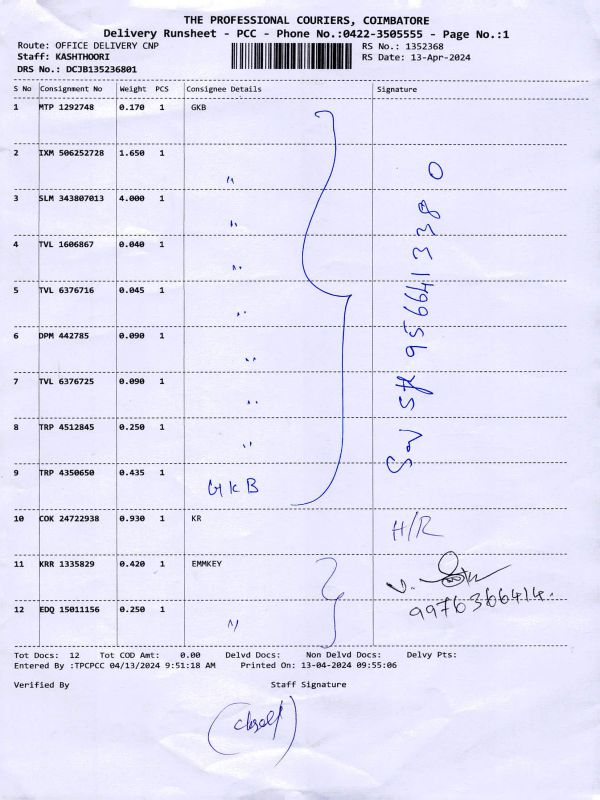 THE PROFESSIONAL COURIERS, COIMBATORE
Delivery Runsheet - PCC - Phone No.:0422-3505555 - Page No.:1
Route: OFFICE DELIVERY CNP RS No.: 1352368
Staff: KASHTHOORI RS Date: 13-Apr-2024
DRS No.: DCJB135236801
S No Consignment No Weight PCS Consignee Details Signature
1 MTP 1292748 0.170 1 GKB
2 IXM 506252728 1.650 1 "
3 SLM 343807013 4.000 1 "
4 TVL 1606867 0.040 1 "
5 TVL 6376716 0.045 1 "
6 DPM 442785 0.090 1 "
7 TVL 6376725 0.090 1 "
8 TRP 4512845 0.250 1 "
9 TRP 4350650 0.435 1 GKB
9566413380
10 COK 24722938 0.930 1 KR H/R
11 KRR 1335829 0.420 1 EMMKEY
9976366414.
12 EDQ 15011156 0.250 1 "
Tot Docs: 12 Tot COD Amt: 0.00 Delvd Docs: Non Delvd Docs: Delvy Pts:
Entered By :TPCPCC 04/13/2024 9:51:18 AM Printed On: 13-04-2024 09:55:06
Verified By Staff Signature